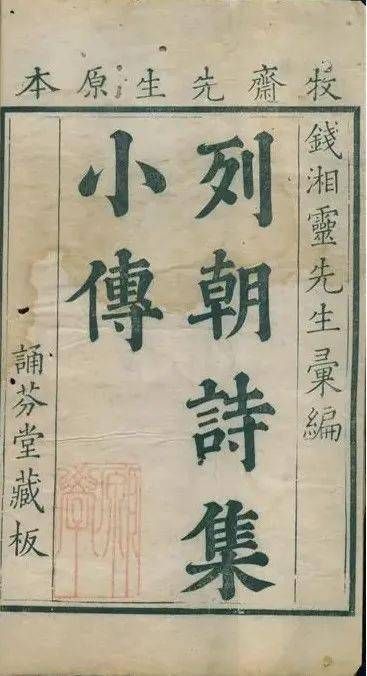 牧齋先生原本
錢湘靈先生彙編
列朝詩集
小傳
誦芬堂藏板